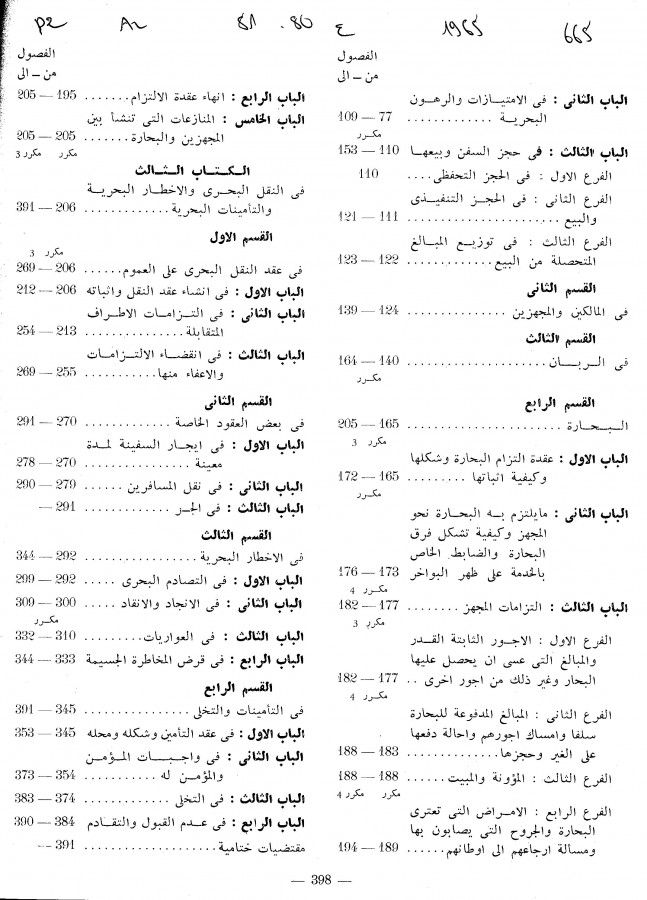 P2 A2 81 . 80 ع 1965 665
الفصول
من — الى
الباب الثانى : فى الامتيازات والرهون
البحرية ............. 77 — 109
مكرر
الباب الثالث : فى حجز السفن وبيعها 110 — 153
الفرع الاول : فى الحجز التحفظى.... 110
الفرع الثانى : فى الحجز التنفيذى
والبيع ...................... 111 — 121
الفرع الثالث : فى توزيع المبالغ
المتحصلة من البيع ............. 122 — 123
القسم الثانى
فى المالكين والمجهزين ............... 124 — 139
القسم الثالث
فى الربان ..................... 140 — 164
مكرر
القسم الرابع
البحارة ..................... 165 — 205
مكرر 3
الباب الاول : عقدة التزام البحارة وشكلها
وكيفية اثباتها ......... 165 — 172
مكرر
الباب الثانى : مايلتزم به البحارة نحو
المجهز وكيفية تشكل فرق
البحارة والضابط الخاص
بالخدمة على ظهر البواخر 173 — 176
مكرر 4
الباب الثالث : التزامات المجهز ........ 177 — 182
مكرر 3
الفرع الاول : الاجور الثابتة القدر
والمبالغ التى عسى ان يحصل عليها
البحار وغير ذلك من اجور اخرى .. 177 — 182
مكرر 4
الفرع الثانى : المبالغ المدفوعة للبحارة
سلفا وامساك اجورهم واحالة دفعها
على الغير وحجزها............. 183 — 188
الفرع الثالث : المؤونة والمبيت ....... 188 — 188
مكرر مكرر 4
الفرع الرابع : الامراض التى تعترى
البحارة والجروح التى يصابون بها
ومسالة ارجاعهم الى اوطانهم...... 189 — 194
الفصول
من — الى
الباب الرابع : انهاء عقدة الالتزام ....... 195 — 205
الباب الخامس : المنازعات التى تنشأ بين
المجهزين والبحارة 205 — 205
مكرر مكرر 3
الكتاب الثالث
فى النقل البحرى والاخطار البحرية
والتأمينات البحرية .............. 206 — 391
القسم الاول
مكرر 3
فى عقد النقل البحرى على العموم...... 206 — 269
الباب الاول : فى انشاء عقد النقل واثباته 206 — 212
الباب الثانى : فى التزامات الاطراف
المتقابلة................ 213 — 254
الباب الثالث : فى انقضاء الالتزامات
والاعفاء منها............ 255 — 269
القسم الثانى
فى بعض العقود الخاصة ............. 270 — 291
الباب الاول : فى ايجار السفينة لمدة
معينة ................ 270 — 278
الباب الثانى : فى نقل المسافرين ...... 279 — 290
الباب الثالث : فى الجر ............. 291 —
القسم الثالث
فى الاخطار البحرية ................ 292 — 344
الباب الاول : فى التصادم البحرى ..... 292 — 299
الباب الثانى : فى الانجاد والانقاد ...... 300 — 309
مكرر
الباب الثالث : فى العواريات.......... 310 — 332
الباب الرابع : فى قرض المخاطرة الجسيمة 333 — 344
القسم الرابع
فى التأمينات والتخلى ............... 345 — 391
الباب الاول : فى عقد التأمين وشكله ومحله 345 — 353
الباب الثانى : فى واجبات المؤمن
والمؤمن له ........... 354 — 373
الباب الثالث : فى التخلى ............ 374 — 383
الباب الرابع : فى عدم القبول والتقادم 384 — 390
مقتضيات ختامية ................... 391 —
— 398 —